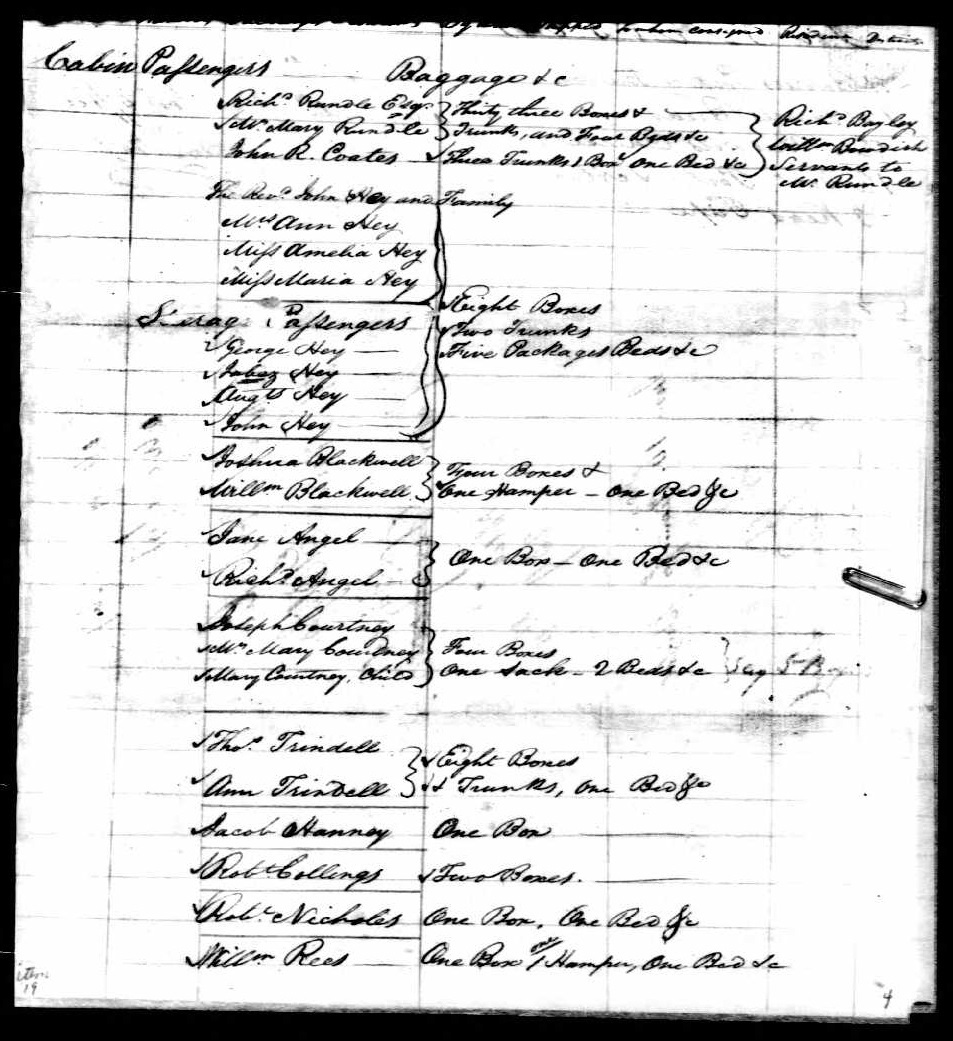 London consigned
Cabin Passengers Baggage &c
Richd Rundle Esqr } Thirty three Boxes &
Mrs Mary Rundle } Trunks, and Four Beds &c
John R. Coates Three Trunks 1 Box One Bed &c
Richd Bayley
Willm
Servants to
Mr Rundle
The Revd John Hey and Family
Mrs Ann Hey
Miss Amelia Hey
Miss Maria Hey
Eight Boxes
Passengers Two Trunks
George Hey — Five Packages Beds &c
Jabez Hey —
Augts Hey —
John Hey —
Joshua Blackwell } Four Boxes &
Willm Blackwell } One Hamper — One Bed &c
Jane Angel —
Richd Angel — } One Box — One Bed &c
Joseph Courtney
Mrs Mary Courtney } Four Boxes
Mary Courtney, Child } One Sack — 2 Beds &c
Thos Trindell } Eight Boxes
Ann Trindell } & Trunks, One Bed &c
Jacob Hanney One Box
Robt Collings Two Boxes.
Robt Nicholes One Box, One Bed &c
Willm Rees — One Box 1 Hamper, One Bed &c
19
4